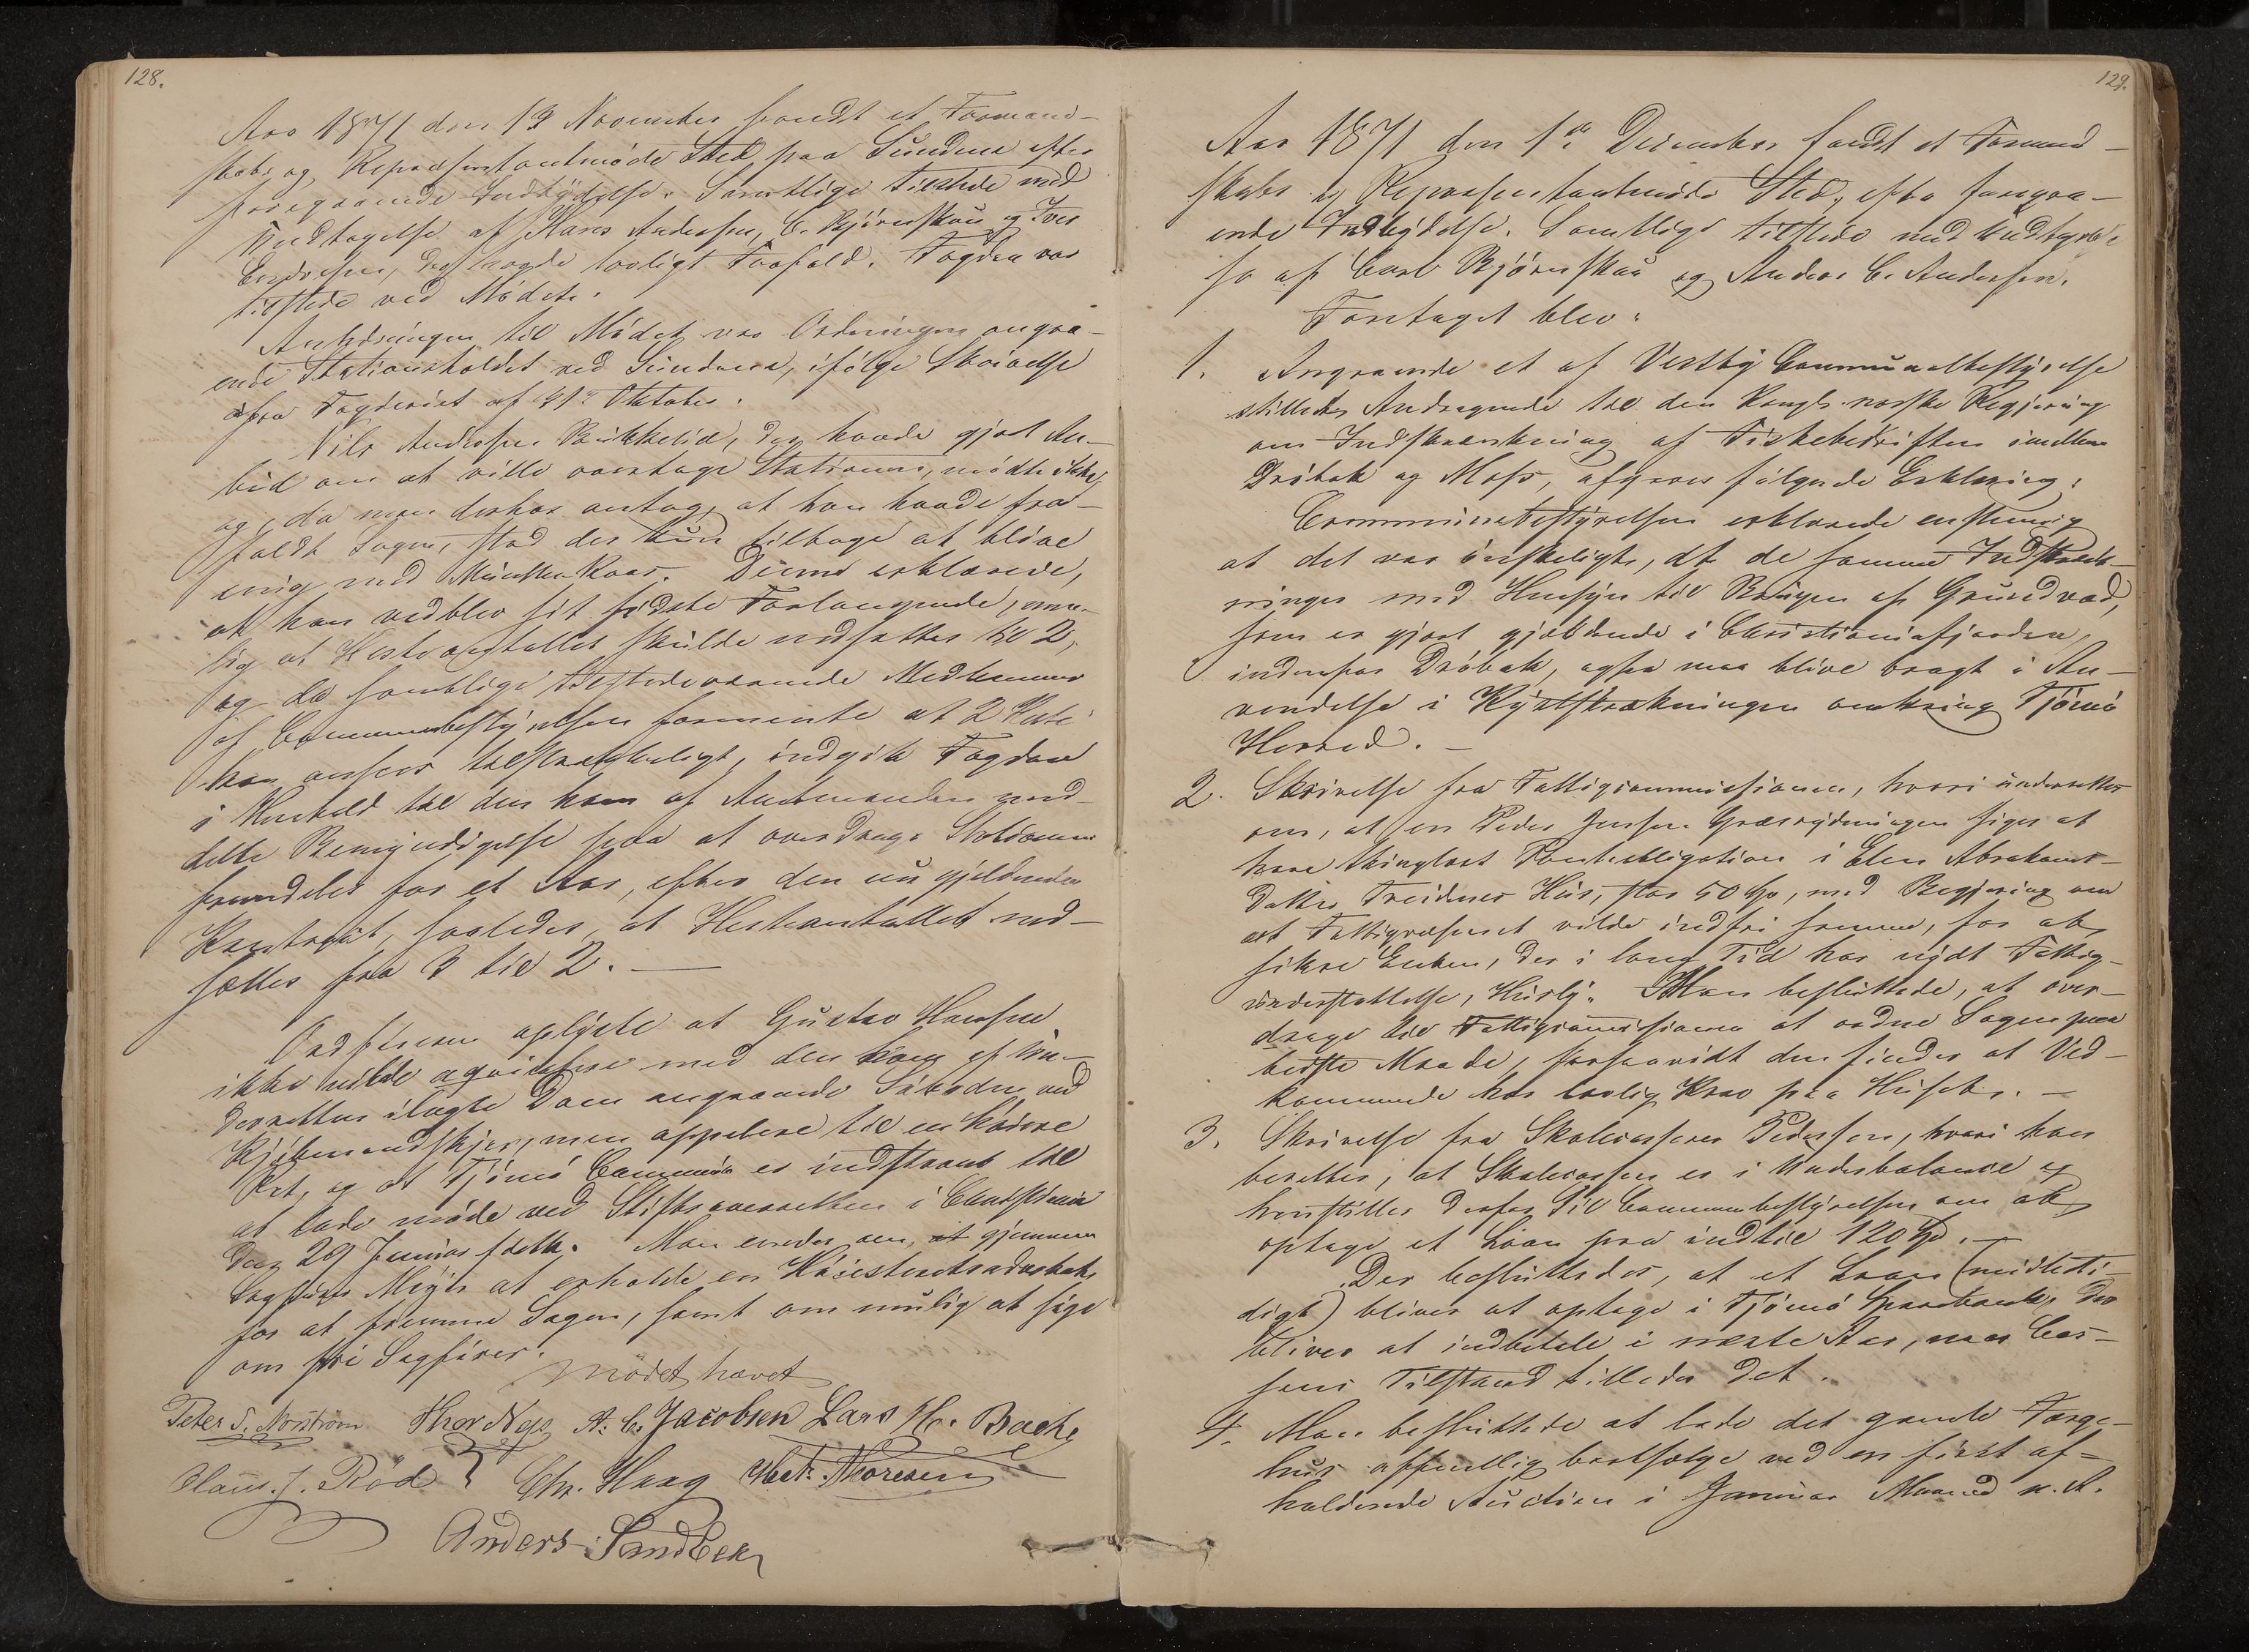 128.
Aar 1871 den 19 November fandt et Formand-
skabs og Repræsentantmøde Sted paa Sundene efter
foregaaende Indbydelse. Samtlige tilstede med
Undtagelse af Hans Anderssen, C. Bjørnskau og Iver
Endresen, der havde lovligt Forfald. Fogden var
tilstede ved Mødet.
Anledningen til Mødet var Ordningen angaa-
ende Stationsholdet ved Sundene, ifølge Skrivelse
fra Fogderiet af Oktober.
Nils Anderssen, der havde gjort An-
bud om at ville overtage Stationen, mødte ikke,
og da man derhos antog, at han havde fra-
faldt Sagen, stod der kun tilbage at blive
enig med Kaas. Denne erklærede,
at han vedblev sit sidste Forlangende, nem-
lig at Hesteantallet skulde nedsættes til 2,
og da samtlige tilstedeværende Medlemmer
af Communebestyrelsen formente at 2 Heste
kan ansees tilstrækkeligt, indgik Fogden
i Henhold til den ham af Amtmanden med-
delte Bemyndigelse paa at overdrage Stationen
fremdeles for et Aar, efter den nu gjeldende
Kontrakt, saaledes, at Hesteantallet ned-
sættes fra 3 til 2.
Ordføreren oplyste at Gustav Hansen
ikke vilde aqviescere med den ham af Un-
derretten ilagte Dom angaaende Søboden ved
Kjøbmandskjær, men appellere til en høiere
Ret, og at Tjømø Commune er indstevnt til
at lade møde ved Stiftsoverretten i Christiania
den 29 Januar førstk. Man enedes om, at gjennem
Sagfører at erholde en Høiesteretsadvokat
for at fremme Sagen, samt om mulig at søge
om fri Sagfører.
Mødet hævet
Peter S. Norstrøm Thor Næs A. C. Jacobsen Lars H. Backe
Claus J. Rød Chr. Haag Math. Thoresen
Anders Sandbek
129.
Aar 1871 den 1ste December fandt et Formand-
skabs og Repræsentantmøde Sted, efter foregaa-
ende Indbydelse. Samtlige tilstede med Undtagel-
se af Carl Bjørnskau og Anders C. Andersen.
Foretaget blev:
1. Angaaende et af Vestby Communalbestyrelse
stillede Andragende til den Kongl. norske Regjering
om Indskrænkning af Fiskebedriften imellem
Drøbak og Moss, afgaves følgende Erklæring:
Communebestyrelsen erklærede enstemmig
at det var ønskeligt, at de samme Indskrænk-
ninger med Hensyn til Brugen af Grundvad,
som er gjort gjældende i Christianiafjorden,
indenfor Drøbak, ogsaa maa blive bragt i An-
vendelse i Kyststrækningen omkring Tjømø
Herred. —
2. Skrivelse fra Fattigcommissionen, hvori underrettes
om, at en Peder Jensen Græsrydningen siges at
have thinglæst Pantobligation i Elen Abrahams-
datter Treidenes Huus, stor 50 Spd, med Begjering om
at Fattigvæsenet vilde indfri samme, for at
sikre Enken, der i lang Tid har nydt Fattig-
understøttelse, Husly. Man besluttede, at over-
drage til Fattigcommissionen at ordne Sagen paa
bedste Maade, forsaavidt den finder at Ved-
kommende har lovlig Krav paa Huset. —
3. Skrivelse fra Skolecasserer Pedersen, hvori han
beretter, at Skolecassen er i Underbalance og
henstiller derfor til Communebestyrelsen om at
optage et Laan paa indtil 120 Spd. —
Der besluttedes, at et Laan (midlerti-
digt) bliver at optage i Tjømø Sparebank, der
bliver at indbetale i næste Aar, naar Cas-
sens Tilstand tillader det.
4. Man besluttede at lade det gamle Færge-
huus offentlig bortsælge ved en først af-
holdende Auction i Januar Maaned n. A.